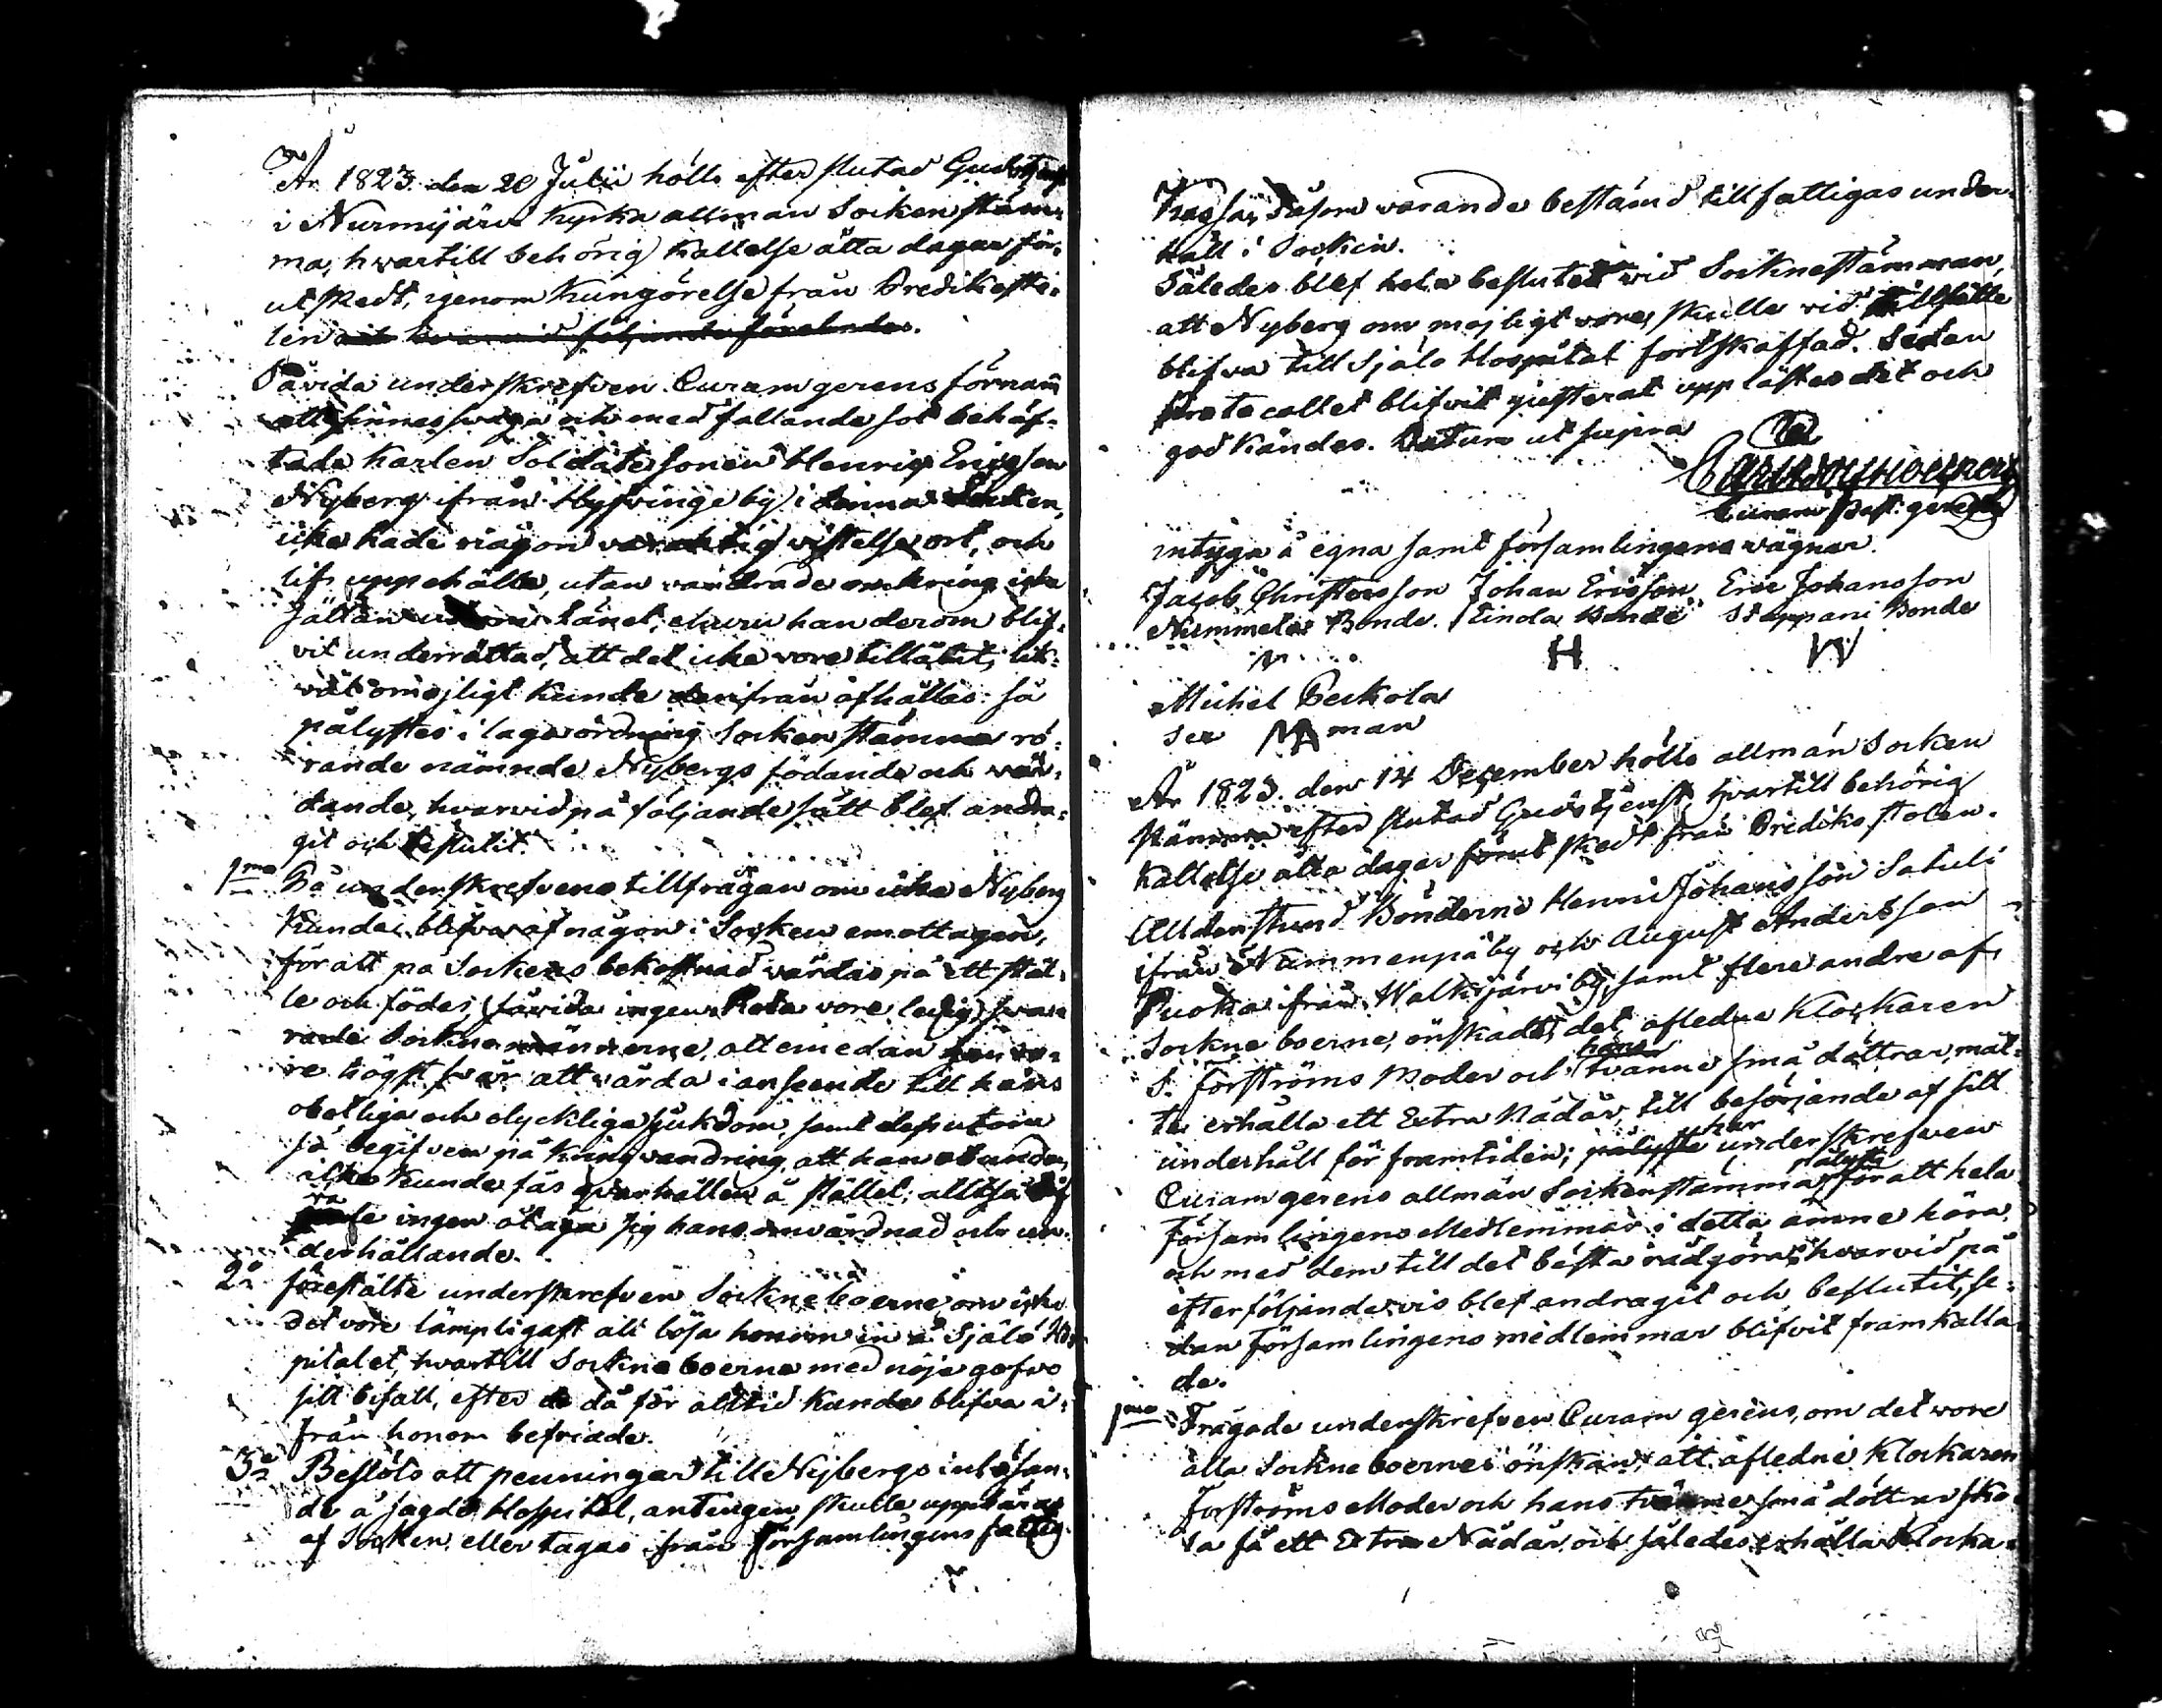 År 1823 den 20 Julii hölls efter slutad Gudstjenst
i Nurmijärvi kyrka allmän Sockenstäm-
ma, hvartill behörig kallelse åtta dagar för-
ut skedt, igenom kungörelse från Predikosto-
len och hvarvid följande förelades.
Såvida underskrefven Curam gerens förnam
att sinnessvaga och med fallande sot behäf-
tade karlen Soldatesonen Henric Ericsson
Nyberg ifrån Hyfvinge by i denna Socken,
icke hade någon varaktig vistelse ort, och
lifs uppehälle, utan vandrade omkring icke
sällan utom Länet, ehuru han derom blif-
vit underrättad, att det icke vore tillåtit, lik-
väl omöjligt kunde derifrån afhållas: så
pålystes i laga ordning Socken stämma rö-
rande nämnde Nybergs födande och vår-
dande, hvarvid på följande sätt blef andra-
git och beslutit.
1mo På underskrefvens tillfrågan om icke Nyberg
kunde blifva af någon i Socken emottagen,
för att på Sockens bekostnad vårdas på ett stäl-
le och födes, (såvida ingen Rota vore ledig) sva-
rade Sockne männerne, att emedan han vo-
re högst svår att vårda i anseende till hans
obotliga och olyckliga sjukdom, samt dessutom
så begifven på kringvandring, att han
icke kunde fås qvarhållen å stället; alltså
ingen åtaga sig hans omvårdnad och un-
derhållande.
2o föreställte underskrefven Socknéboerne om icke
det vore lämpligast att lösa honom in å Själö Hos-
pitalet, hvartill Sockneboerne med nöje gofvo
sitt bifall, efter de då för alltid kunde blifva i-
från honom befriade.
3o Beslöts att penningar till Nybergs inlösan-
de å sagde Hospital, antingen skulle uppbäras
af Socken eller tagas ifrån Församlingens fattig-
Kassa, såsom varande bestämd till fattigas under-
håll i Socken.
Således blef hela beslutet vid Socknestämman,
att Nyberg om möjligt vore, skulle vid tillfälle
blifva till Själö Hospital fortskaffad. Sedan
Protocollet blifvit justerat upplästes det och
godkändes. Datum ut supra
Curam Past. gerens
intyga å egna samt församlingens vägnar.
Jacob Christersson Johan Ericsson Eric Johansson
Nummela Bonde. Bonde Stappani Bonde
N H W
Michel Peckola
Sex MA man
År 1823. den 14 December hölls allmän Socken
stämma efter slutad Gudstjenst, hvartill behörig
kallelse åtta dagar förut skedt från Predikostolen.
Alldenstund Bönderne Henric Johansson Satuli
ifrån Nummenpä by och August Andersson
Puoka ifrån Walkjärvi by, samt flere andre af
Sockne boerne, önskade, det afledne Klockaren
S. Forströms Moder och hans tvänne små döttrar, måt-
te erhålla ett Extra Nådår, till besörjande af sitt
underhåll för framtiden; pålyste underskrefven
Curam gerens allmän Sockenstämma pålysa för att hela
Församlingens Medlemmar i detta ämne höra,
och med dem till det bästa rådgöra; hvarvid på
efterföljande vis blef andragit och beslutit, se-
dan Församlingens medlemmar blifvit framkalla-
de.
1mo Frågade underskrefven Curam gerens, om det vore
alla Sockneboernes önskan, att afledne Klockaren
Forströms Moder och hans tvänne små döttrar sko-
la få ett Extra Nådår och således erhålla Klocka-